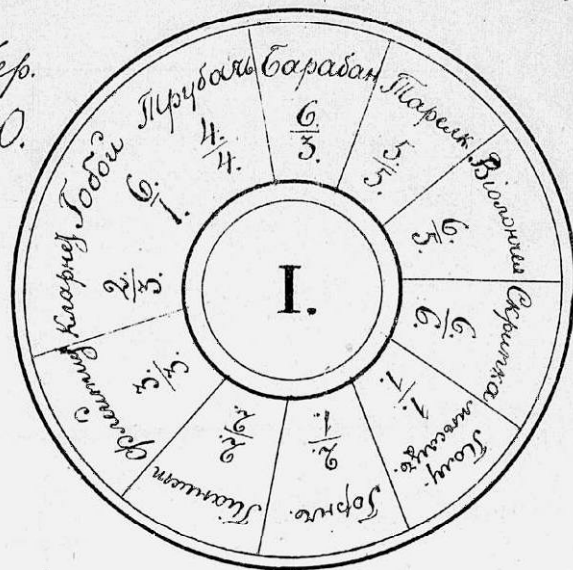 ер.
О.
Барабан
6.
3.
Тарелк
5.
5.
Віолончел
6.
5.
Скрипка
6.
6.
Полу-
мѣсяцъ.
1.
1.
Горнъ.
2.
1.
Піанист
2.
2.
Флейтищ
3.
3.
Кларнет
2.
3.
Гобой
6.
1.
Трубачъ
4.
4.
I.